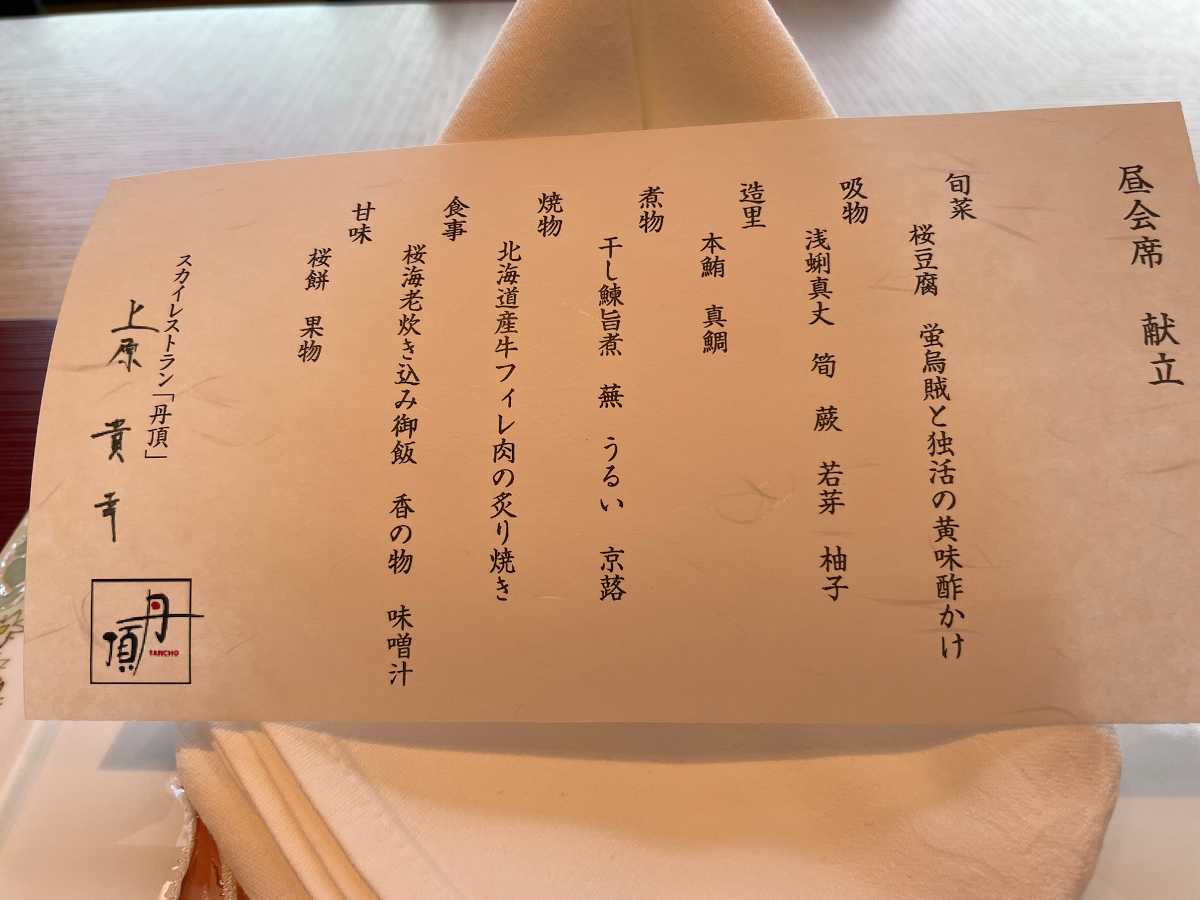 昼会席　献立
旬菜
桜豆腐　蛍烏賊と独活の黄味酢かけ
吸物
浅蜊真丈　筍　蕨　若芽　柚子
造里
本鮪　真鯛
煮物
干し鰊旨煮　蕪　うるい　京蕗
焼物
北海道産牛フィレ肉の炙り焼き
食事
桜海老炊き込み御飯　香の物　味噌汁
甘味
桜餅　果物
スカイレストラン「丹頂」
上原　貴幸
丹頂
TANCHO